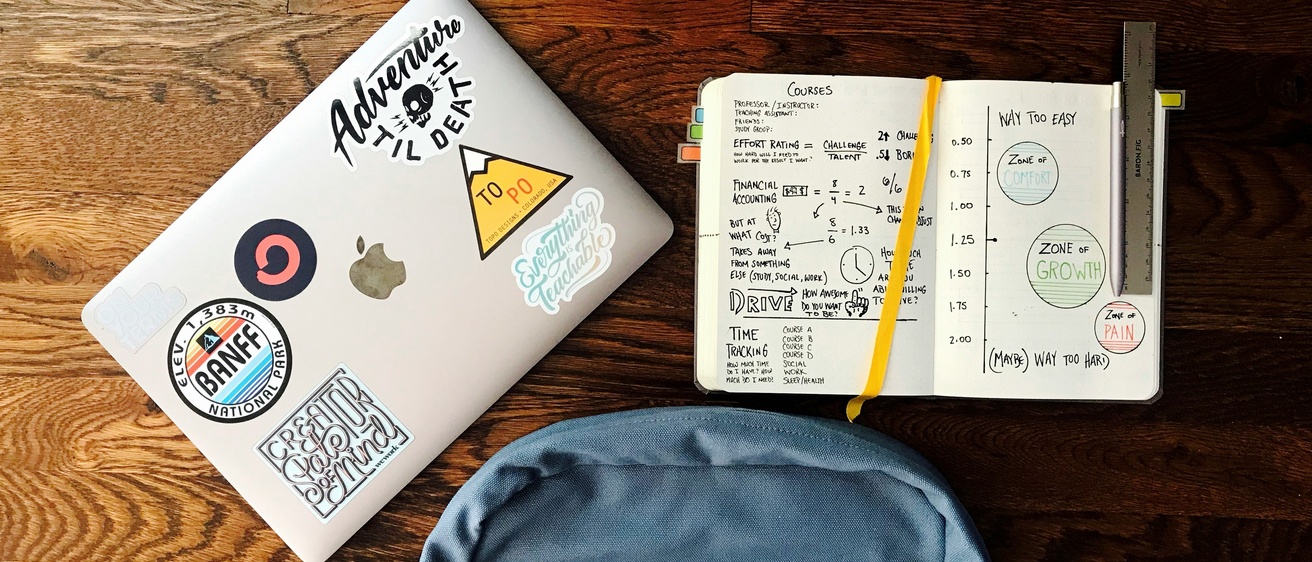 Adventure
TIL DEATH
TO PO
TOPO DESIGNS • COLORADO, USA
Everything
is
Teachable
ELEV. 1,383m
BANFF
NATIONAL PARK
CREATOR
Pale
OF Mind
wework
COURSES
PROFESSOR / INSTRUCTOR:
TEACHING ASSISTANT:
FRIENDS:
STUDY GROUP:
EFFORT RATING = CHALLENGE
TALENT
HOW HARD WILL I NEED TO
WORK FOR THE RESULT I WANT?
2↑ CHALLE
.5↓ BOR
FINANCIAL
ACCOUNTING
$ = 8/4 = 2
6/6
THIS
CHA JUST
BUT AT
WHAT COST?
8/6 = 1.33
TAKES AWAY
FROM SOMETHING
ELSE (STUDY, SOCIAL, WORK)
HOW MUCH
ARE YOU
WILLING
DRIVE
HOW AWESOME
DO YOU WANT
TO BE?
TIME
TRACKING
HOW MUCH TIME
DO I HAVE? HOW
MUCH DO I NEED?
COURSE A
COURSE B
COURSE C
COURSE D
SOCIAL
WORK
SLEEP/HEALTH
WAY TOO EASY
0.50
0.75
1.00
1.25
1.50
1.75
2.00
ZONE OF
COMFORT
ZONE OF
GROWTH
ZONE OF
PAIN
(MAYBE) WAY TOO HARD
BARON FIG